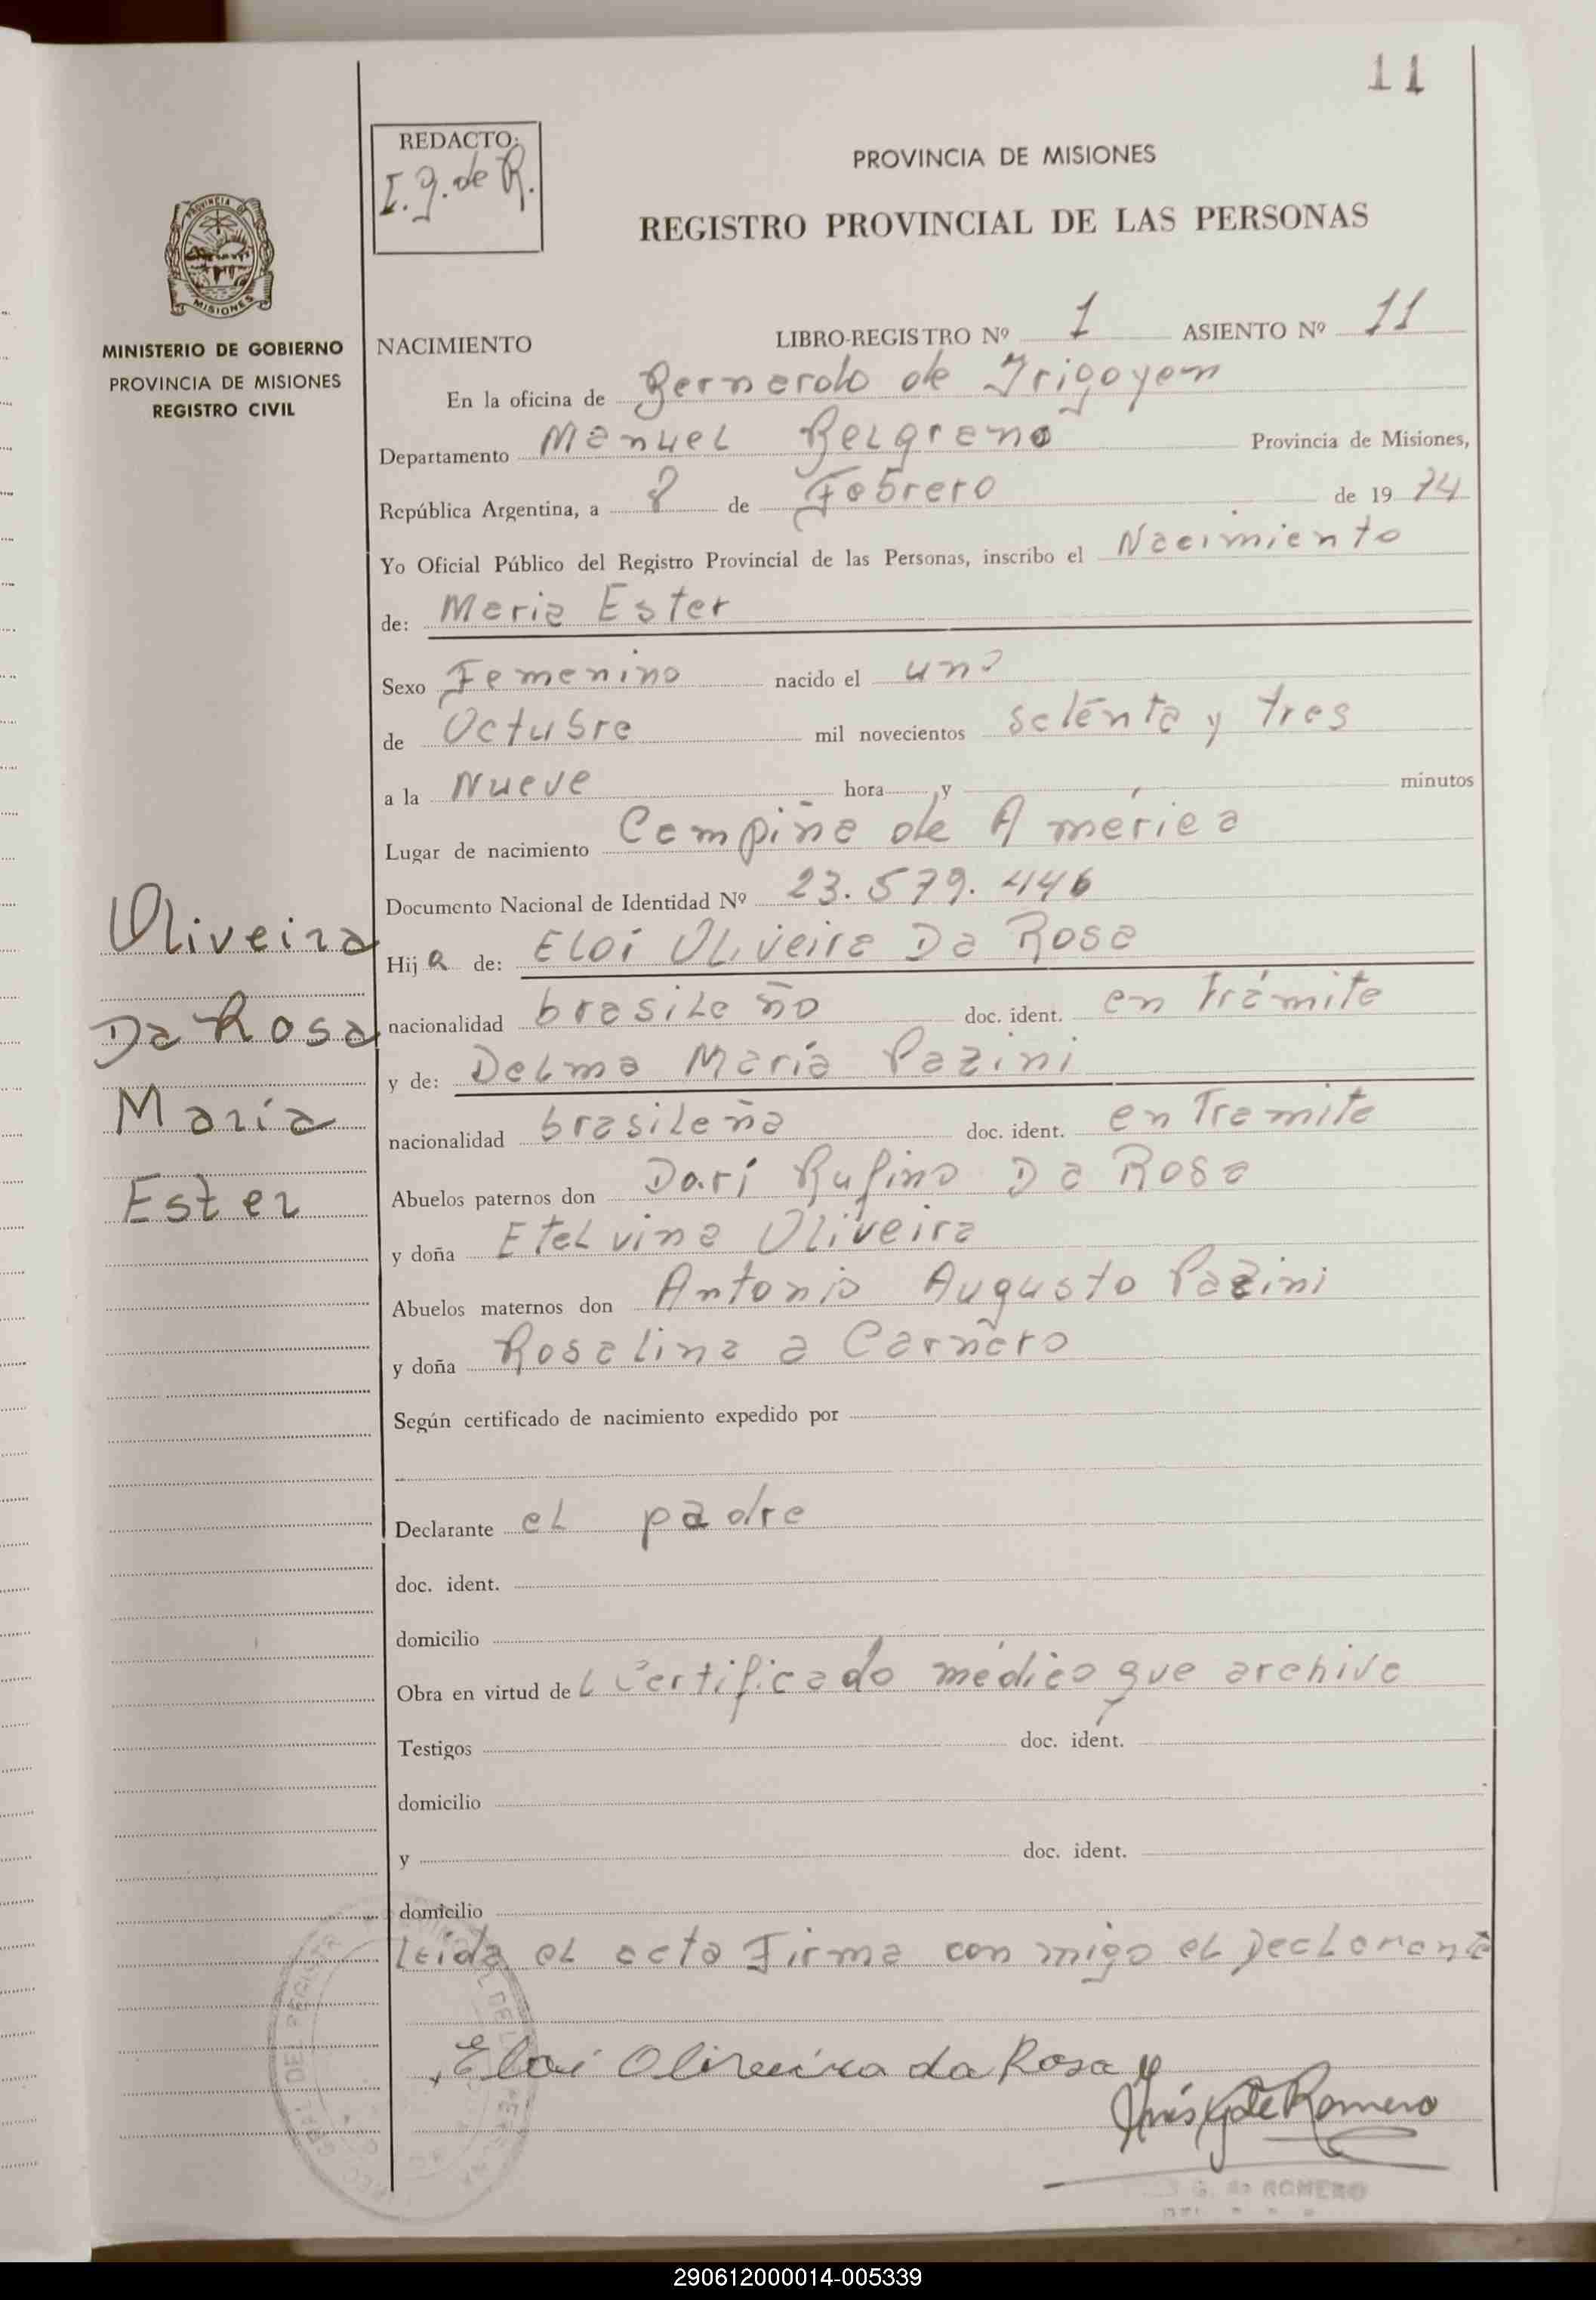 11
REDACTO:
I. g. de R.
PROVINCIA DE MISIONES
REGISTRO PROVINCIAL DE LAS PERSONAS
PROVINCIA
MISIONES
MINISTERIO DE GOBIERNO
PROVINCIA DE MISIONES
REGISTRO CIVIL
NACIMIENTO LIBRO-REGISTRO Nº 1 ASIENTO Nº 11
En la oficina de Bernardo de Irigoyen
Departamento Manuel Belgrano Provincia de Misiones,
República Argentina, a 8 de Febrero de 1974
Yo Oficial Público del Registro Provincial de las Personas, inscribo el Nacimiento
de: Maria Ester
Sexo Femenino nacido el uno
de Octubre mil novecientos setenta y tres
a la Nueve hora y minutos
Lugar de nacimiento Campiña de América
Documento Nacional de Identidad Nº 23.579.446
Hija de: Eloi Oliveira Da Rosa
nacionalidad brasileño doc. ident. en trámite
y de: Delma María Pazini
nacionalidad brasileña doc. ident. en Tramite
Abuelos paternos don Dari Rufino Da Rosa
y doña Etelvina Oliveira
Abuelos maternos don Antonio Augusto Pazini
y doña Rosalina a Carñero
Según certificado de nacimiento expedido por
Declarante el padre
doc. ident.
domicilio
Obra en virtud del Certificado médico que archivo
Testigos doc. ident.
domicilio
y doc. ident.
domicilio
Leída el acta Firma con migo el Declarante
Eloi Oliveira da Rosa
Inés G de Romero
G. de ROMERO
Oliveira
Da Rosa
María
Ester
290612000014-005339